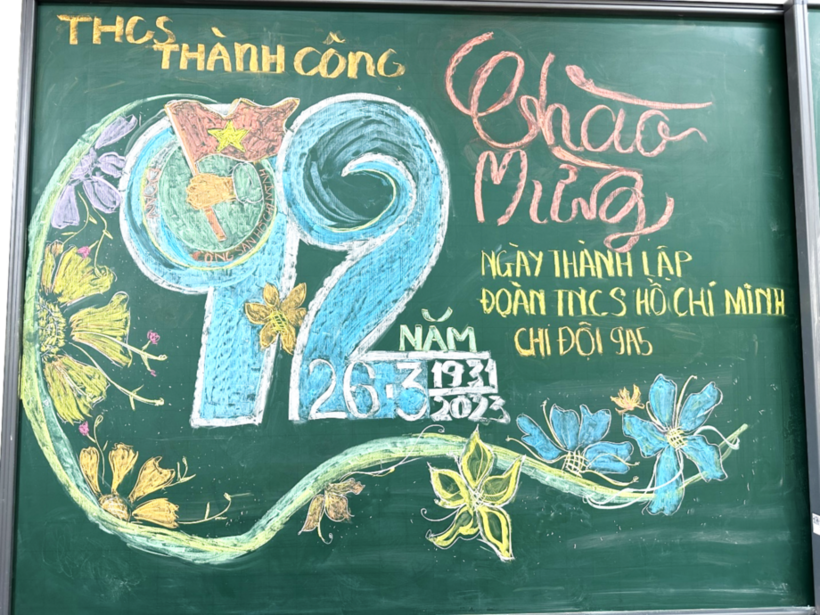 THCS
THÀNH CÔNG
Chào
Mừng
92
NĂM
26.3
1931
2023
NGÀY THÀNH LẬP
ĐOÀN TNCS HỒ CHÍ MINH
CHI ĐỘI 9A5